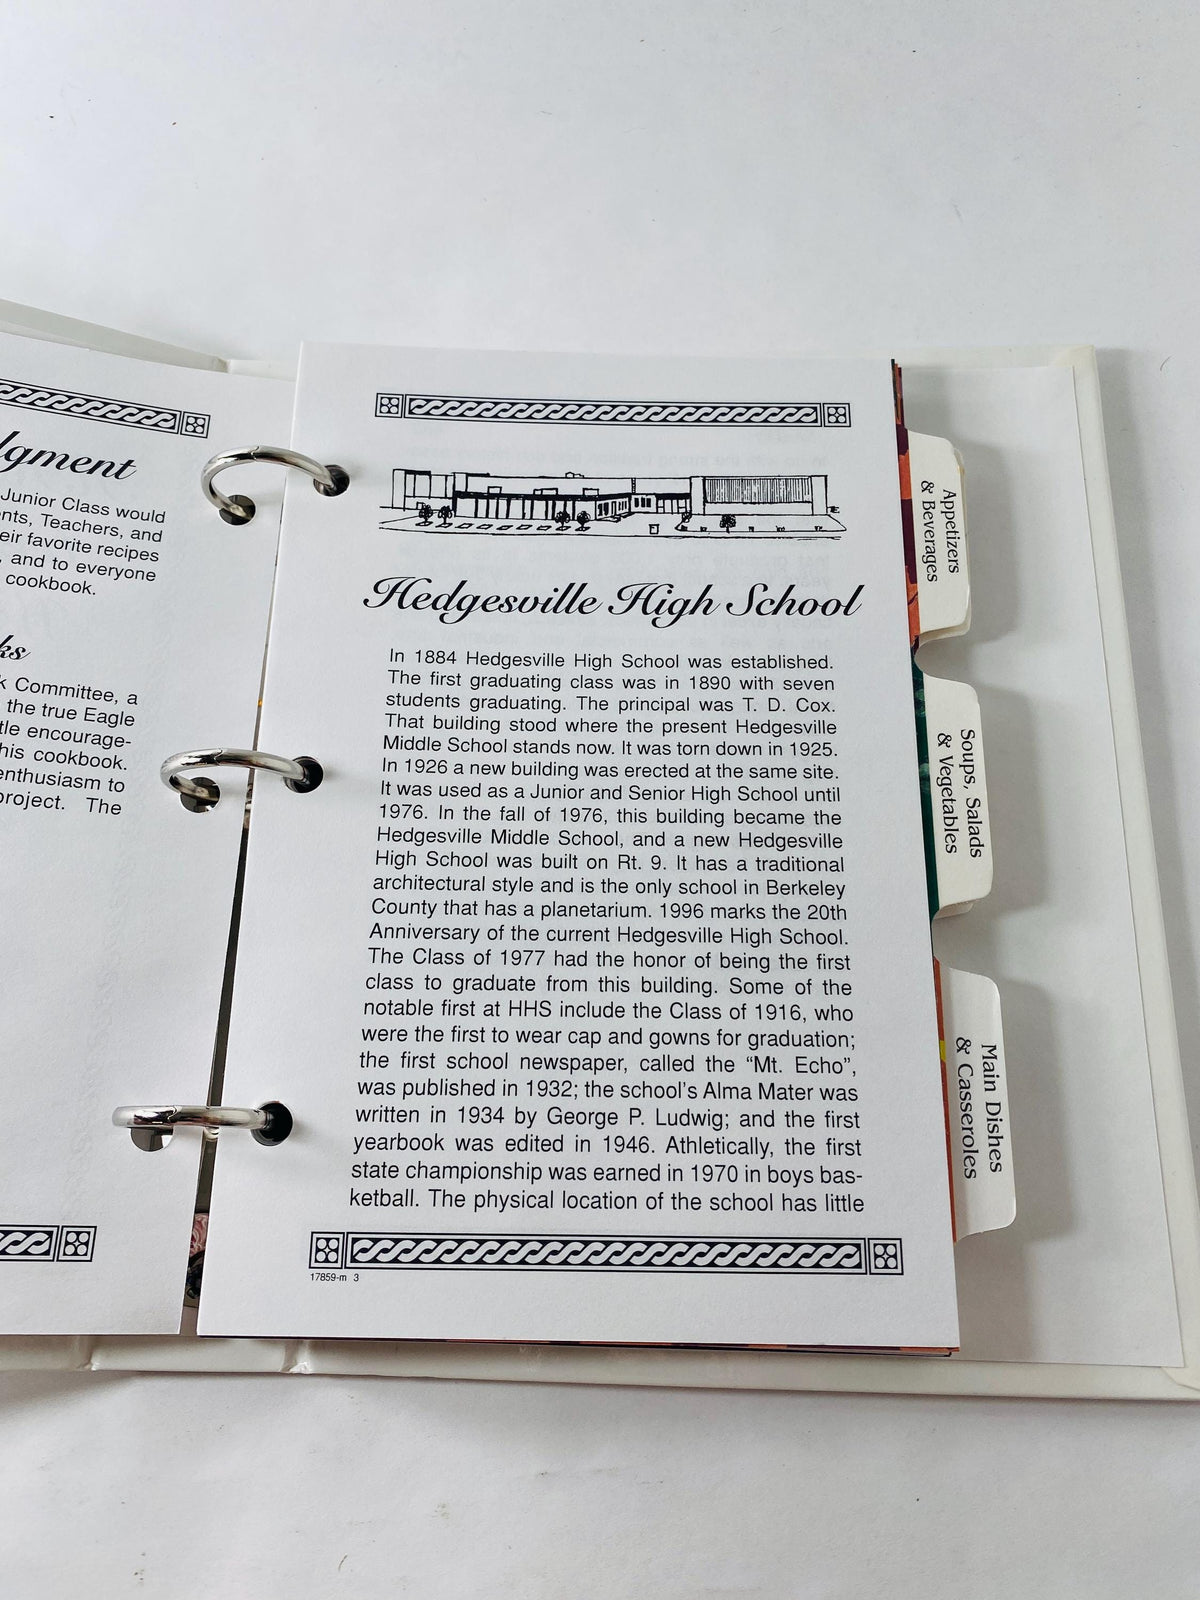 lgment
Junior Class would
nts, Teachers, and
eir favorite recipes
, and to everyone
cookbook.
ks
k Committee, a
the true Eagle
tle encourage-
his cookbook.
enthusiasm to
project. The
Hedgesville High School
In 1884 Hedgesville High School was established.
The first graduating class was in 1890 with seven
students graduating. The principal was T. D. Cox.
That building stood where the present Hedgesville
Middle School stands now. It was torn down in 1925.
In 1926 a new building was erected at the same site.
It was used as a Junior and Senior High School until
1976. In the fall of 1976, this building became the
Hedgesville Middle School, and a new Hedgesville
High School was built on Rt. 9. It has a traditional
architectural style and is the only school in Berkeley
County that has a planetarium. 1996 marks the 20th
Anniversary of the current Hedgesville High School.
The Class of 1977 had the honor of being the first
class to graduate from this building. Some of the
notable first at HHS include the Class of 1916, who
were the first to wear cap and gowns for graduation;
the first school newspaper, called the “Mt. Echo”,
was published in 1932; the school's Alma Mater was
written in 1934 by George P. Ludwig; and the first
yearbook was edited in 1946. Athletically, the first
state championship was earned in 1970 in boys bas-
ketball. The physical location of the school has little
17859-m 3
Appetizers
& Beverages
Soups, Salads
& Vegetables
Main Dishes
& Casseroles